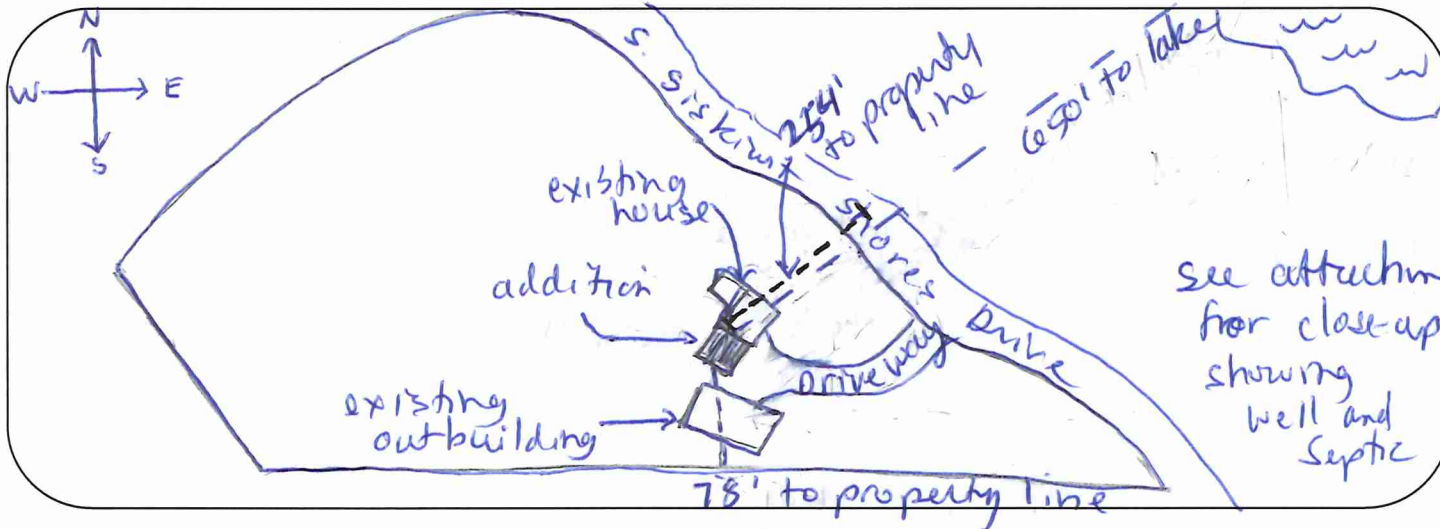 N
W E
S
S. Siskin Shores Drive
254'
to property
line
650' to lake
existing
house
addition
existing
outbuilding
Driveway
78' to property line
see attachm
for close-up
showing
well and
Septic